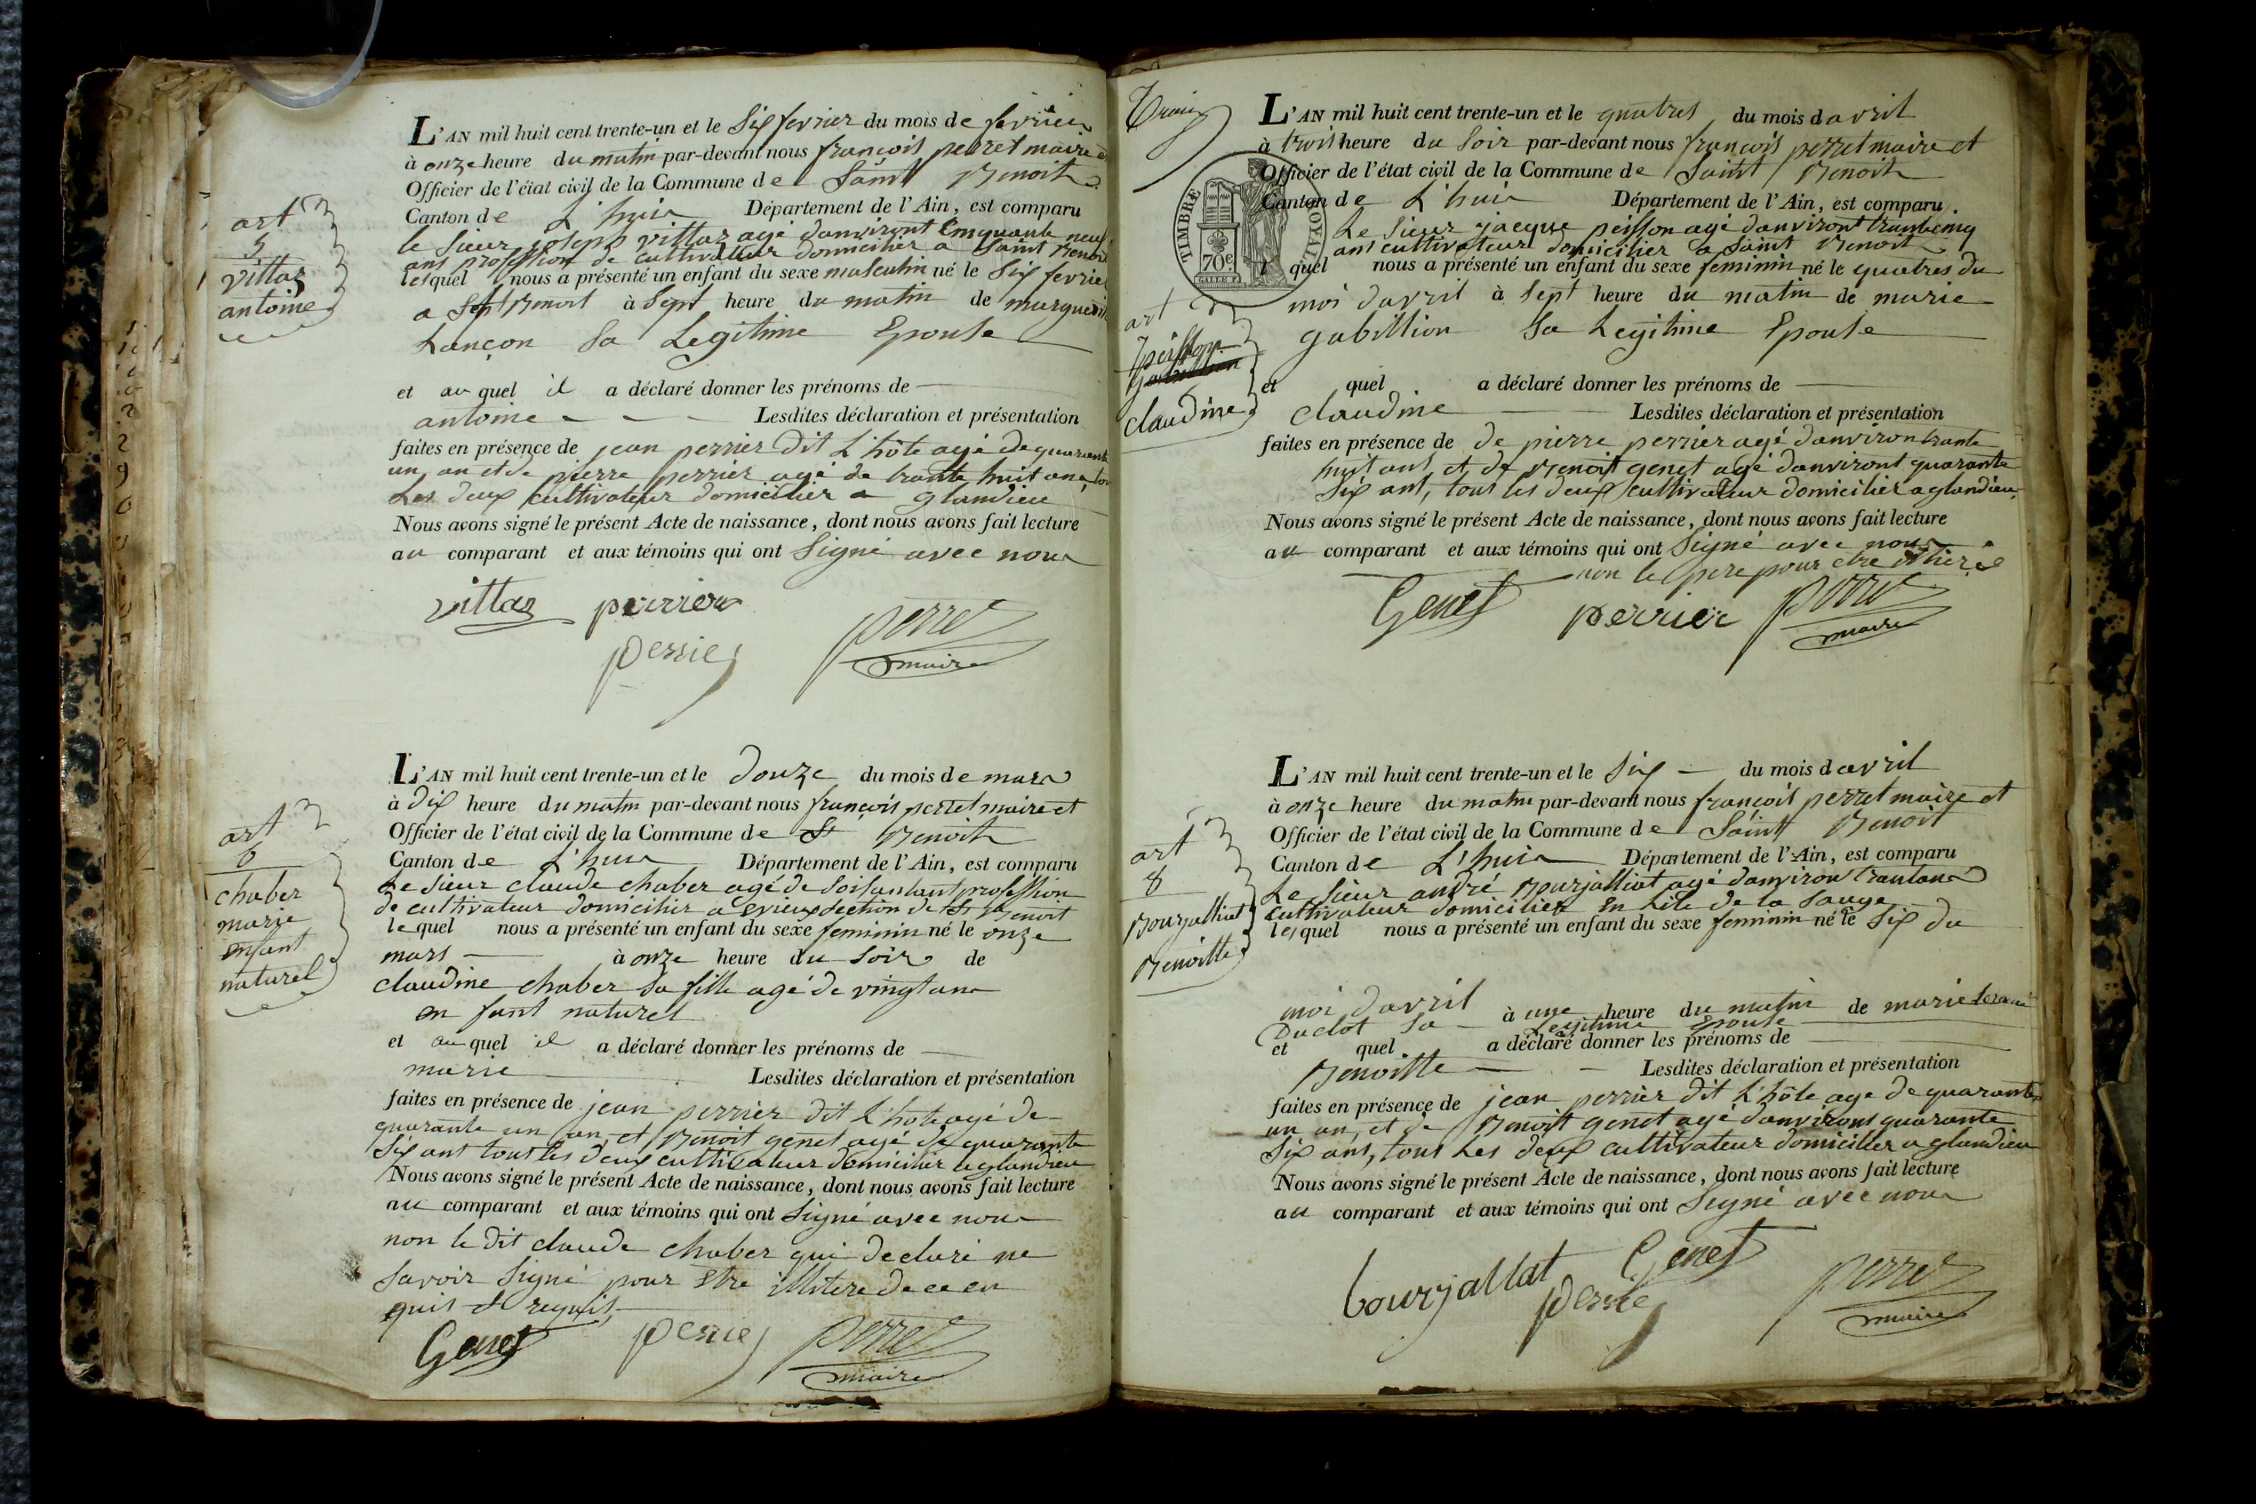 art
5
vittoz
antoine
L'AN mil huit cent trente-un et le six fevrier du mois de fevrier
à onze heure du matin par-devant nous françois perret maire et
Officier de l'état civil de la Commune de Saint Benoit
Canton de L'huis Département de l'Ain, est comparu
le sieur joseph vittoz agé danviront cinquante neuf
ans profession de cultivateur domicilier a Saint Benoit
lesquel nous a présenté un enfant du sexe masculin né le six fevrier
a St Benoit à sept heure du matin de marguerite
Lançon sa Legitime Epouse
et au quel il a déclaré donner les prénoms de
antoine Lesdites déclaration et présentation
faites en présence de jean perrier dit L'hôte agé de quarante
un an et de pierre perrier agé de trante huit ans, tous
Les deux cultivateur domicilier a glandieu
Nous avons signé le présent Acte de naissance, dont nous avons fait lecture
au comparant et aux témoins qui ont signé avec nous
vittoz perrier
perrier perret
maire
art
6
chaber
marie
enfant
naturel
L'AN mil huit cent trente-un et le douze du mois de mars
à dix heure du matin par-devant nous françois perret maire et
Officier de l'état civil de la Commune de St Benoit
Canton de L'huis Département de l'Ain, est comparu
Le sieur claude chaber agé de soisantant profession
de cultivateur domicilier a evieux section de St Benoit
lequel nous a présenté un enfant du sexe feminin né le onze
mars à onze heure du soir de
claudine chaber sa fille agé de vingt ans
en fant naturel
et au quel il a déclaré donner les prénoms de
marie Lesdites déclaration et présentation
faites en présence de jean perrier dit L'hote agé de
quarante un an, et Benoit genet agé de quarante
six ant tous les deux cultivateur domicilier a glandieu
Nous avons signé le présent Acte de naissance, dont nous avons fait lecture
au comparant et aux témoins qui ont signé avec nous
non le dit claude chaber qui declaré ne
savoir signé pour être illitere de ce en
quis et requis
Genet perrier perret
maire
TIMBRE ROYAL
70c
L'AN mil huit cent trente-un et le quatres du mois davril
à trois heure du soir par-devant nous françois perret maire et
Officier de l'état civil de la Commune de Saint Benoit
Canton de L'huis Département de l'Ain, est comparu
Le sieur jacque peisson agé danviront trantecinq
ans cultivateur domicilier a Saint Benoit
l quel nous a présenté un enfant du sexe feminin né le quatres du
moi davril à sept heure du matin de marie
gabillion sa Legitime Epouse
art
7
peisson
claudine
et quel a déclaré donner les prénoms de
claudine Lesdites déclaration et présentation
faites en présence de de pierre perrier agé danviron trante
huit ant et de Benoit genet agé danviront quarante
six ant, tous les deux cultivateur domicilier a glandieu
Nous avons signé le présent Acte de naissance, dont nous avons fait lecture
au comparant et aux témoins qui ont signé avec nous
non le pere pour etre
Genet perrier perret
maire
art
8
Bourjalliat
Benoitte
L'AN mil huit cent trente-un et le six du mois davril
à onze heure du matin par-devant nous françois perret maire et
Officier de l'état civil de la Commune de Saint Benoit
Canton de L'huis Département de l'Ain, est comparu
Le sieur andré Bourjalliat agé danviron trantans
cultivateur domicilier en Lile de la Sauge
lesquel nous a présenté un enfant du sexe feminin né le six du
moi davril à une heure du matin de marie
Duclot sa Legitime Epouse
et quel a déclaré donner les prénoms de
Benoitte Lesdites déclaration et présentation
faites en présence de jean perrier dit L'hôte age de quarante
un an, et de Benoit genet agé danvirons quarante
six ans, tous Les deux cultivateur domicilier a glandieu
Nous avons signé le présent Acte de naissance, dont nous avons fait lecture
au comparant et aux témoins qui ont signé avec nous
bourjallat Genet
perrier perret
maire